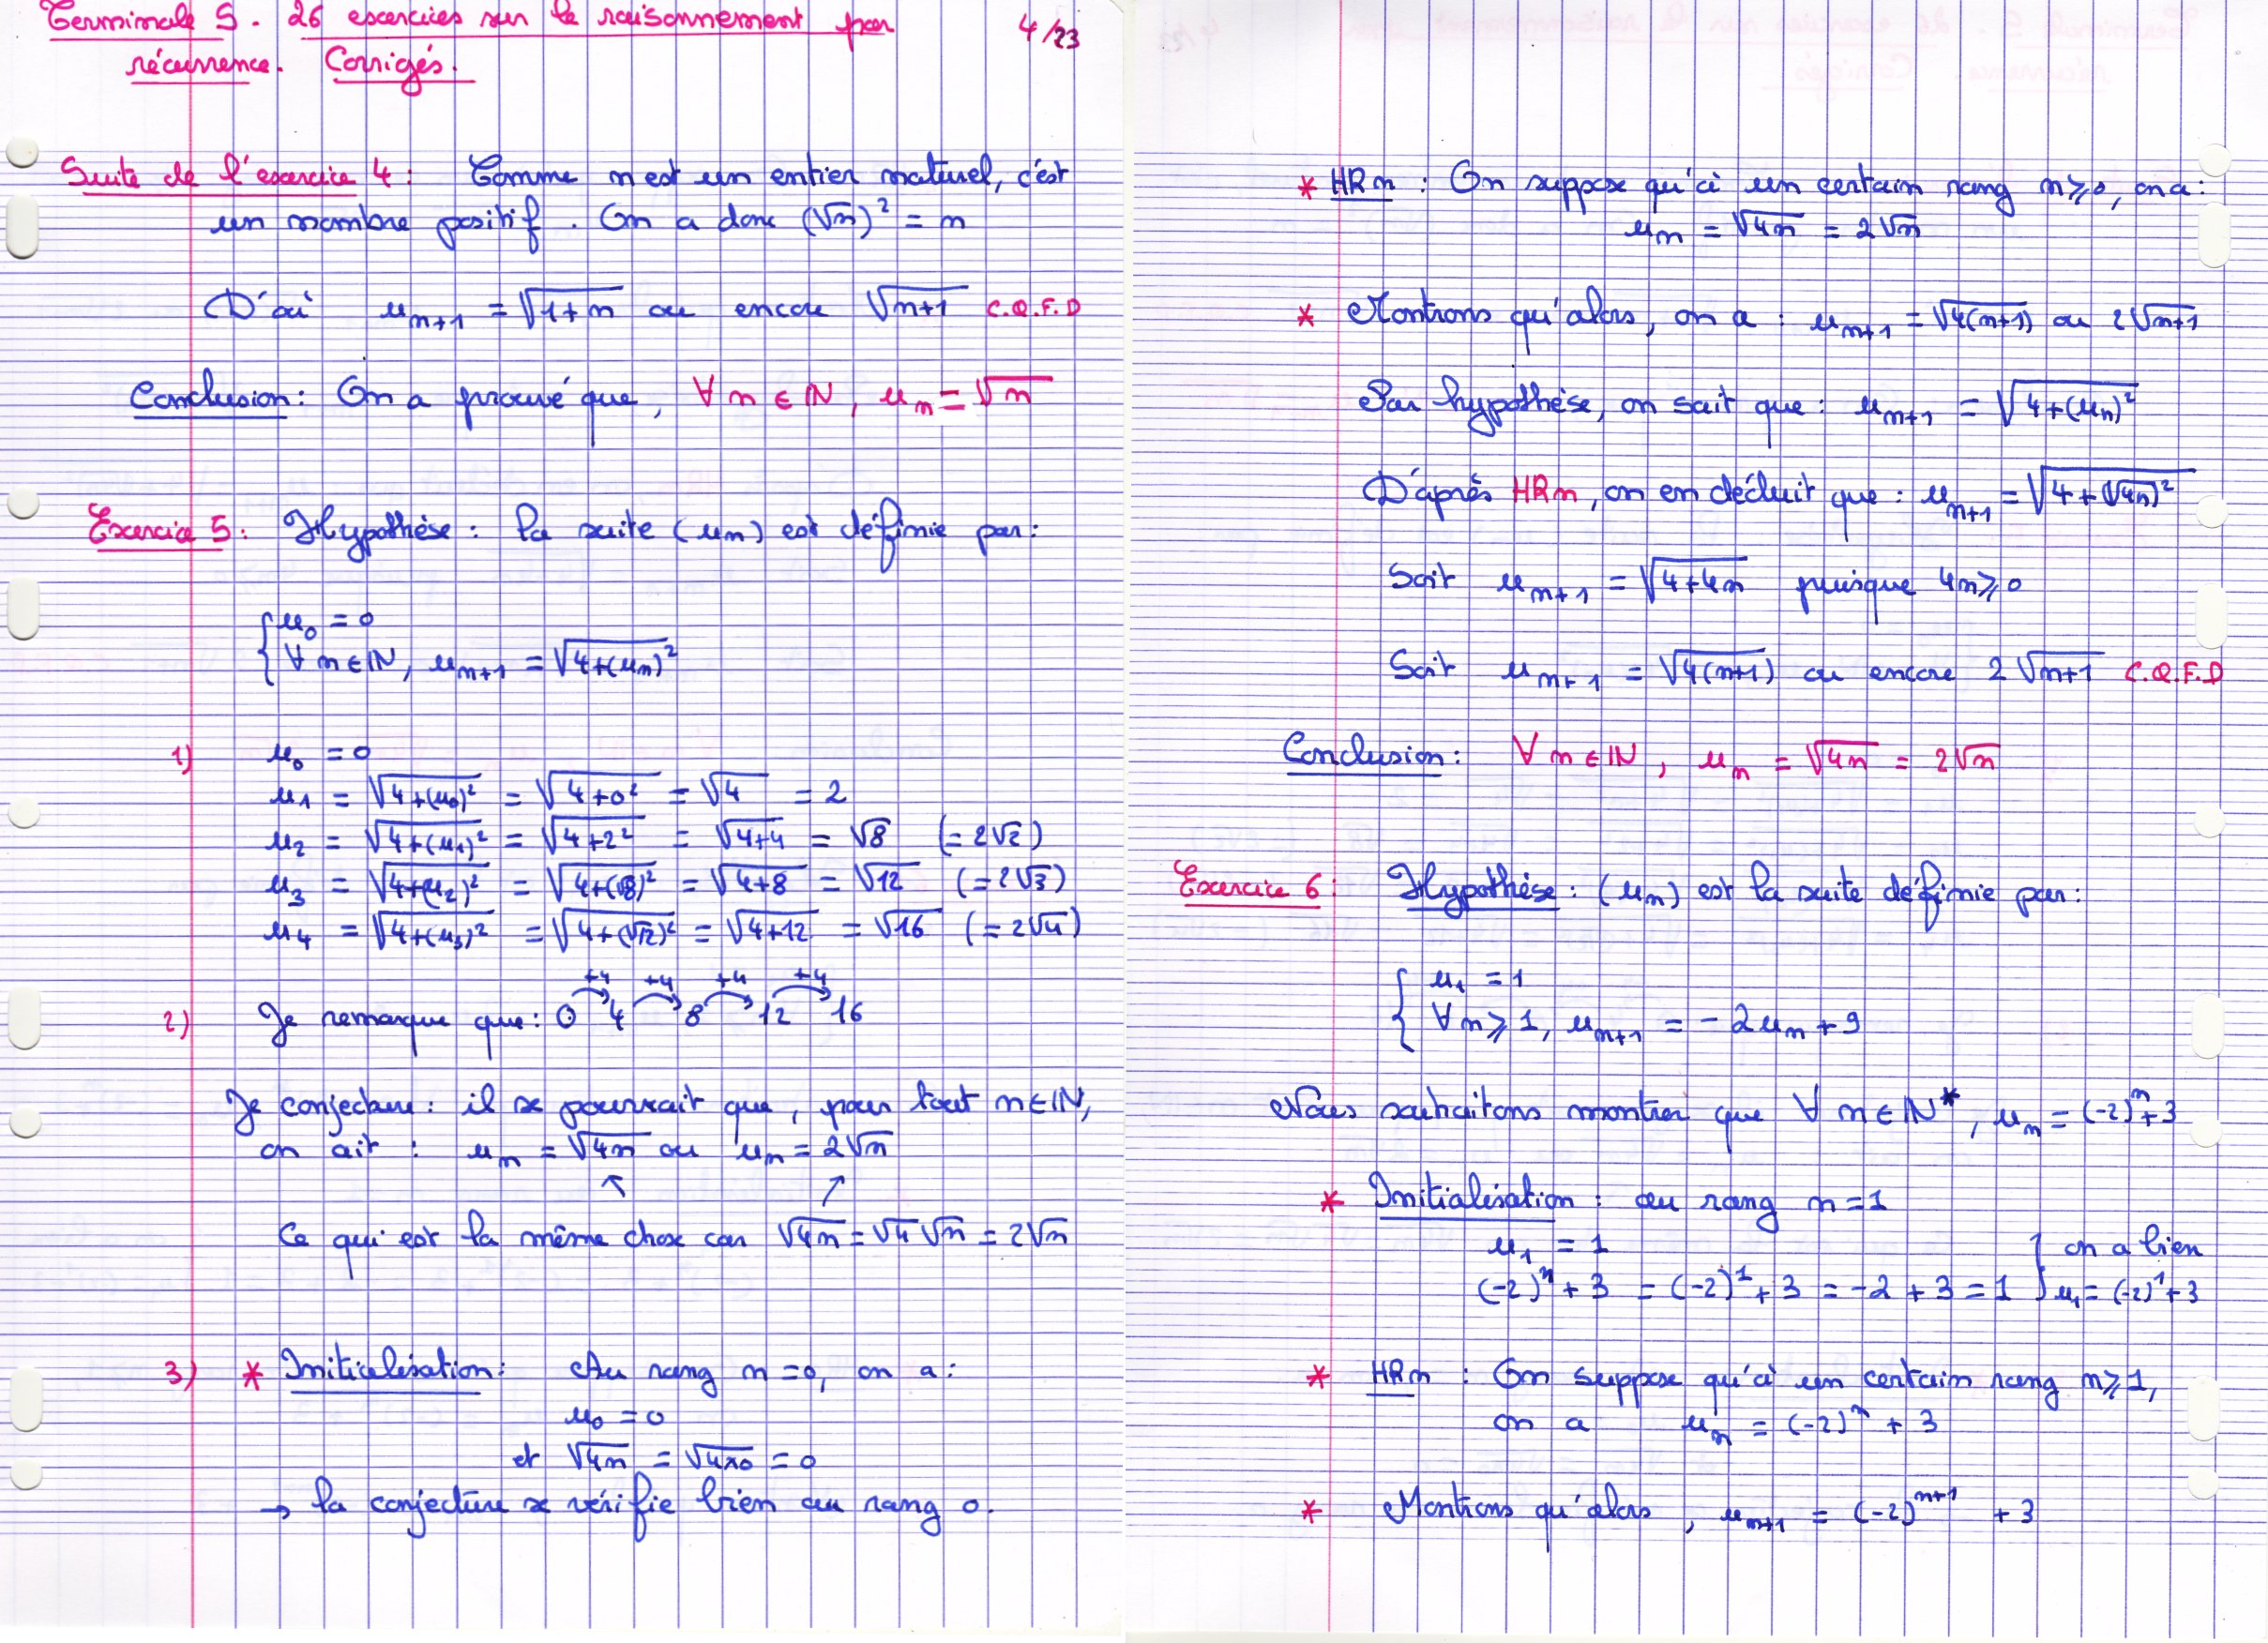 Terminale S. 26 exercices sur le raisonnement par
récurrence. Corrigés.
4/23
Suite de l'exercice 4 : Comme n est un entier naturel, c'est
un nombre positif. On a donc (√n)² = n
D'où u_{n+1} = √(1+n) ou encore √(n+1) C.Q.F.D
Conclusion : On a prouvé que, ∀ n ∈ ℕ, u_n = √n
Exercice 5 : Hypothèse : la suite (u_n) est définie par :
{ u_0 = 0
∀ n ∈ ℕ, u_{n+1} = √(4+(u_n)²)
1) u_0 = 0
u_1 = √(4+(u_0)²) = √(4+0²) = √4 = 2
u_2 = √(4+(u_1)²) = √(4+2²) = √(4+4) = √8 (= 2√2)
u_3 = √(4+(u_2)²) = √(4+(√8)²) = √(4+8) = √12 (= 2√3)
u_4 = √(4+(u_3)²) = √(4+(√12)²) = √(4+12) = √16 (= 2√4)
+4 +4 +4 +4
2) Je remarque que : 0 4 8 12 16
Je conjecture : il se pourrait que, pour tout n ∈ ℕ,
on ait : u_n = √(4n) ou u_n = 2√n
↖ ↗
Ce qui est la même chose car √(4n) = √4 √n = 2√n
3) * Initialisation : Au rang n = 0, on a :
u_0 = 0
et √(4n) = √(4×0) = 0
→ la conjecture se vérifie bien au rang 0.
* HRn : On suppose qu'à un certain rang n ⩾ 0, on a :
u_n = √(4n) = 2√n
* Montrons qu'alors, on a : u_{n+1} = √(4(n+1)) ou 2√(n+1)
Par hypothèse, on sait que : u_{n+1} = √(4+(u_n)²)
D'après HRn, on en déduit que : u_{n+1} = √(4+(√(4n))²)
Soit u_{n+1} = √(4+4n) puisque 4n ⩾ 0
Soit u_{n+1} = √(4(n+1)) ou encore 2√(n+1) C.Q.F.D
Conclusion : ∀ n ∈ ℕ, u_n = √(4n) = 2√n
Exercice 6 : Hypothèse : (u_n) est la suite définie par :
{ u_1 = 1
∀ n ⩾ 1, u_{n+1} = -2u_n + 9
Nous souhaitons montrer que ∀ n ∈ ℕ*, u_n = (-2)^n + 3
* Initialisation : au rang n = 1
u_1 = 1 } on a bien
(-2)^n + 3 = (-2)^1 + 3 = -2 + 3 = 1 } u_1 = (-2)^1 + 3
* HRn : On suppose qu'à un certain rang n ⩾ 1,
on a u_n = (-2)^n + 3
* Montrons qu'alors, u_{n+1} = (-2)^{n+1} + 3